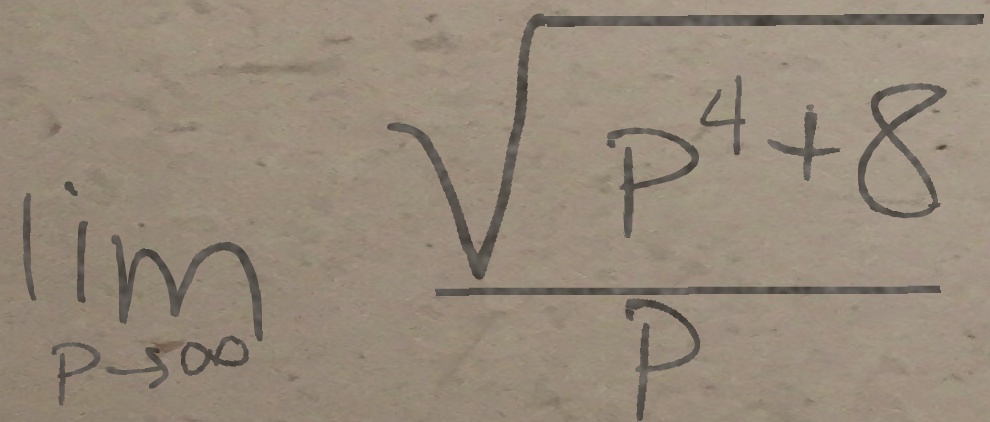 \lim_{p \to \infty} \frac{\sqrt{p^4+8}}{p}